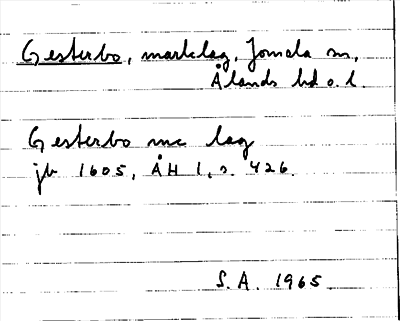 Gesterbo, marklag, Jomala sn,
Ålands hd o. l.
Gesterbo mc lag
jb 1605, ÅH 1, s. 426.
S.A. 1965